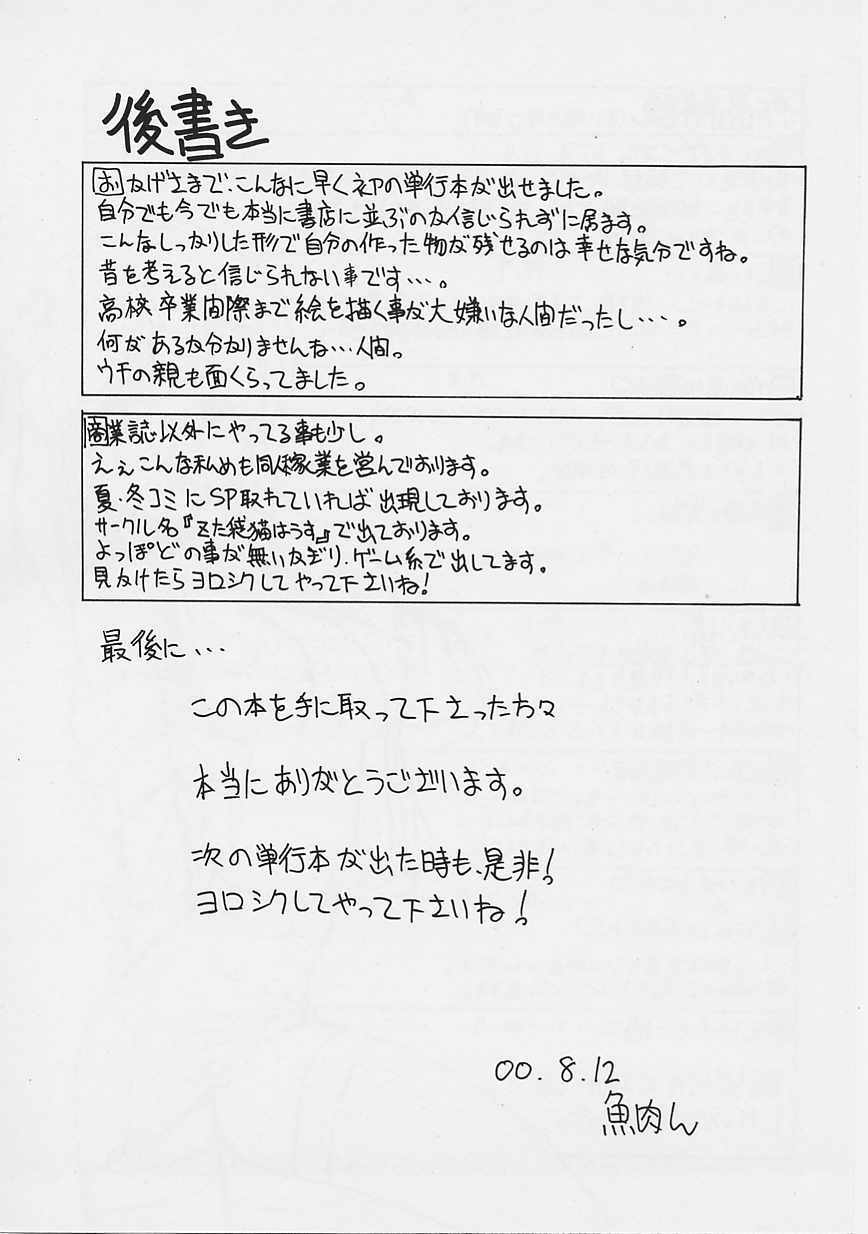 後書き
おかげさまで、こんなに早く初の単行本が出せました。
自分でも今でも本当に書店に並ぶのか信じられずに居ます。
こんなしっかりした形で自分の作った物が残せるのは幸せな気分ですね。
昔を考えると信じられない事です…。
高校卒業間際まで絵を描く事が大嫌いな人間だったし…。
何があるか分かりませんね…人間。
ウチの親も面くらってました。
商業誌以外にやってる事も少し。
えぇこんな私めも同人稼業を営んでおります。
夏・冬コミにSP取れていれば出現しております。
サークル名『ずた袋猫はうす』で出ております。
よっぽどの事が無いかぎり、ゲーム系で出してます。
見かけたらヨロシクしてやって下さいね!
最後に…
この本を手に取って下さった方々
本当にありがとうございます。
次の単行本が出た時も、是非!
ヨロシクしてやって下さいね!
00.8.12
魚肉ん